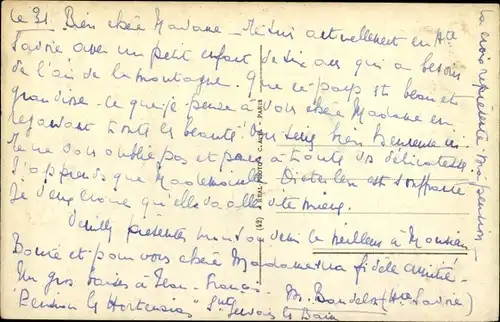 le 31. Bien chère Madame – Me suis actuellement en Hte
Savoie avec un petit enfant de dix ans qui a besoin
de l'air de la montagne. Que ce pays est beau et
grandiose – ce que je pense à vous chère Madame en
regardant toute les beauté! Vous seriez bien heureuse ici
Je ne vous oublie pas et pense à toute vos délicatesse
J'apprends que Mademoiselle est souffrante
Je veux croire qu'elle va allé vite mieux
Veuillez présenter mon bon souvenir le meilleur à Monsieur
Bonté et pour vous chère Madame ma fidèle amitié.
Un gros baiser à Jean-François.
M. Baudelot (Hte Savoie)
"Pension les Hortensias" St Gervais les Bains
la croix représente ma pension
(42) A REAL-PHOTO – C.A.P. – PARIS